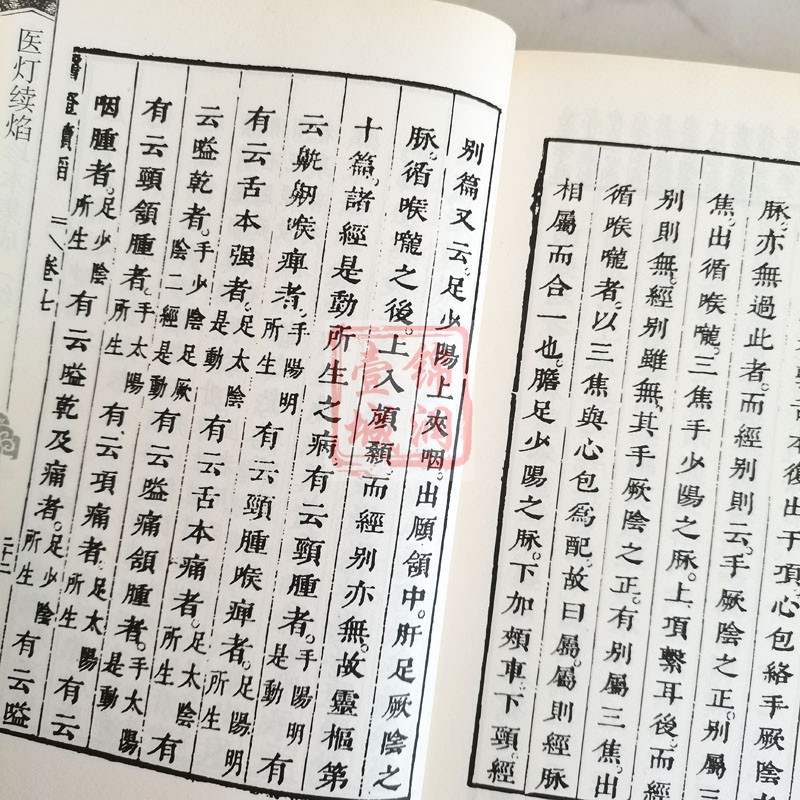 舌本復出于項。心包絡手厥陰之
脉。亦無過此者。而經別則云。手厥陰之正。別屬三
焦。出循喉嚨。三焦手少陽之脉。上項繫耳後。而經
別則無。經別雖無。其手厥陰之正。有別屬三焦。出
循喉嚨者。以三焦與心包為配。故曰屬。屬則經脉
相屬而合一也。膽足少陽之脉。下加頰車。下頸。經
別篇又云。足少陽上夾咽。出頤頷中。肝足厥陰之
脉。循喉嚨之後。上入頏顙。而經別亦無。故靈樞第
十篇。諸經是動所生之病。有云頸腫者。手陽明是動有
云鼽衂喉痺者。手陽明所生有云頸腫喉痺者。足陽明所生有
有云舌本强者。足太陰有云舌本痛者。足太陰所生有
云嗌乾者。手少陰足厥陰二經是動有云嗌痛頷腫者。手太陽是動
有云頸頷腫者。手太陽所生有云項痛者。足太陽所生有云
咽腫者。足少陰所生有云嗌乾及痛者。足少陰所生有云嗌
卷七
二十二
医灯续焰